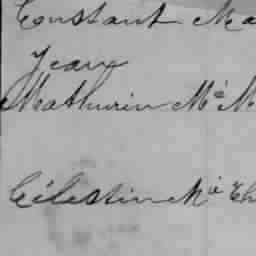 Constant Ma
Jean
Mathurin Mie M
Célestin Mie Th